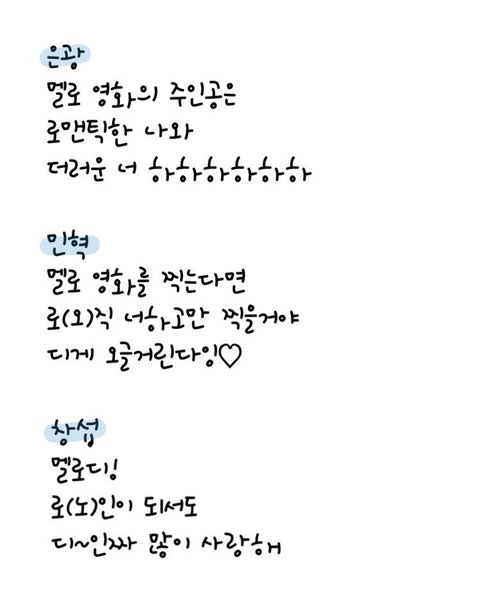 은광
멜로 영화의 주인공은
로맨틱한 나와
더러운 너 하하하하하하
민혁
멜로 영화를 찍는다면
로(오)직 너하고만 찍을거야
디게 오글거린다잉♡
창섭
멜로디!
로(노)인이 되서도
디~인짜 많이 사랑해